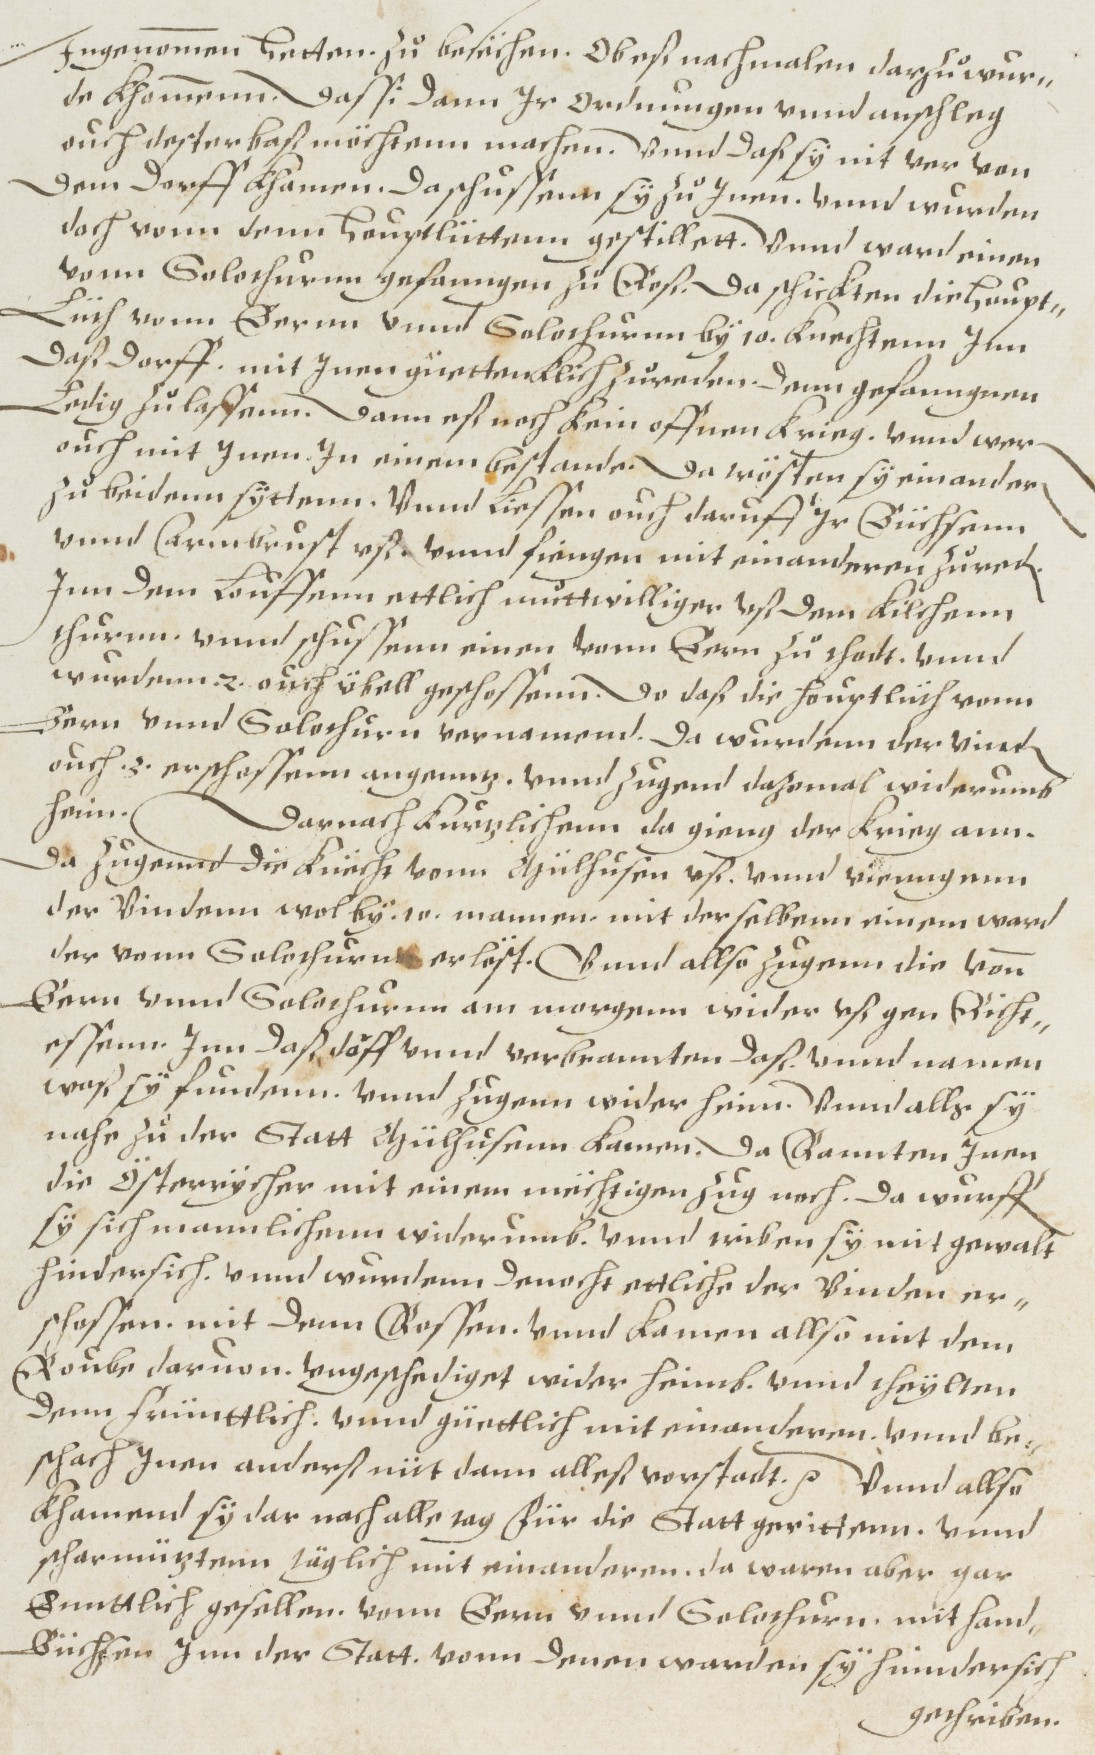 Ingenomen hetten. Zů besächen. Ob eß nachmalen darzů wur„
de khomenn. Dass si dann Ir Ordnungen vnnd anschleg
ouch dester baß möchtenn machen. Vnnd daß sy nit ver von
dem Dorff khamen. Da schussenn sÿ zů Inen. vnnd wurden
doch vonn denn houptlüttenn gestillett. Vnnd ward einen
vonn Solothurnn gefanngen zů Roß. Da schickten die houpt„
Lüth vonn Bernn vnnd Solothurnn by 10. knechtenn Inn
daß dorff. mit Inen güettencklich zů reden. denn gefanngnen
Ledig zů lassenn. Dann eß noch kein offnen krieg. vnnd wer
ouch mit Inen In einem bestande. Da trösten sÿ einander
zů beidenn syttenn. Vnnd liessen ouch daruff Ir Büchsenn
vnnd Armbrust vß. vnnd fiengen mit einanderen zů red.
Inn dem Louffenn ettlich muttwilliger vß dem kilchenn
thurnn. vnnd schussenn einen vonn Bern zů thodt. vnnd
wurdenn .2. ouch übell geschossenn. Do daß die houptlüth vonn
Bern vnnd Solothurn vernamend. Da wurdenn der vind
ouch .3. erschossenn angenntz. vnnd zugend dazemal widerumb
heim. Darnach kurtzlichenn da gieng der krieg ann.
Da zugennd die knecht vonn Mülhusen vß. vnnd viengenn
der Vindenn wol bÿ .10. mannen. mit derselbenn einem ward
der vonn Solothurnn erlöst. Vnnd allso zugenn die vonn
Bern vnnd Solothurnn am morgenn wider vß gen Richt„
essenn. Inn daß döff vnnd verbrannten daß. vnnd namen
waß sÿ fundenn. vnnd zugenn wider heim. Vnnd allß sÿ
nahe zů der Statt Mülhusenn kamen. Da Rannten Inen
die Österrÿcher mit einem mächtigen zug noch. Da wurff
sÿ sich mannlichenn widerumb. vnnd triben sÿ mit gewalt
hindersich. vnnd wurdenn dennocht ettliche der Vinden er„
schossen. mit denn Rossen. vnnd kamen allso mit dem
Roube daruon. vngeschediget wider heimb. vnnd theÿlten
denn früntlich. vnnd güettlich mit einanderen. vnnd be„
schach Inen anderß nüt dann alleß vorstadt. Vnnd allso
khamend sÿ dar nach alle tag für die Statt gerittenn. vnnd
scharmützten täglich mit einanderen. da waren aber gar
gesellen. vonn Bern vnnd Solothurn. mit hand„
Büchsen Inn der Statt. vonn denen warden sÿ hindersich
gethriben.